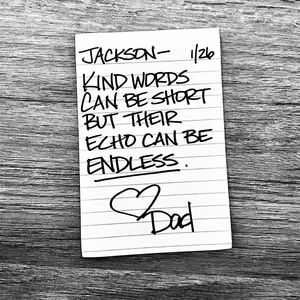 JACKSON— 1/26
KIND WORDS
CAN BE SHORT
BUT THEIR
ECHO CAN BE
ENDLESS.
Dad